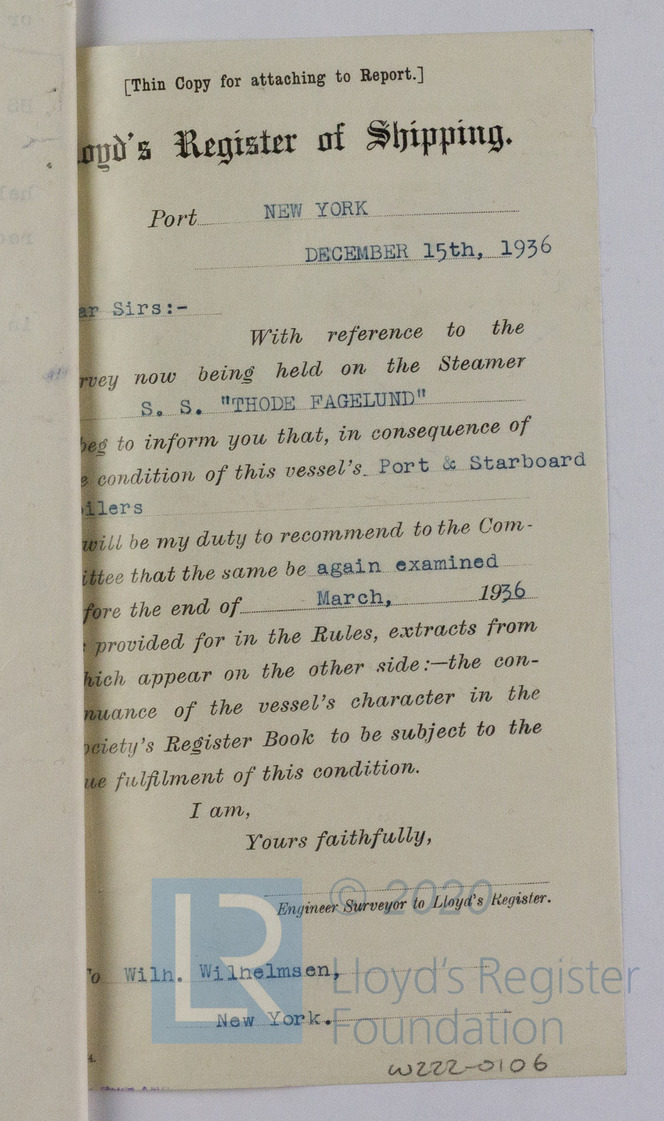 [Thin Copy for attaching to Report.]
oyd's Register of Shipping.
Port NEW YORK
DECEMBER 15th, 1936
ar Sirs:-
With reference to the
rvey now being held on the Steamer
S. S. "THODE FAGELUND"
beg to inform you that, in consequence of
e condition of this vessel's Port & Starboard
ilers
will be my duty to recommend to the Com-
ittee that the same be again examined
fore the end of March, 1936
provided for in the Rules, extracts from
hich appear on the other side:—the con-
nuance of the vessel's character in the
ociety's Register Book to be subject to the
ue fulfilment of this condition.
I am,
Yours faithfully,
© 2020
Engineer Surveyor to Lloyd's Register.
LR
To Wilh. Wilhelmsen,
Lloyd's Register
New York.
Foundation
W222-0106